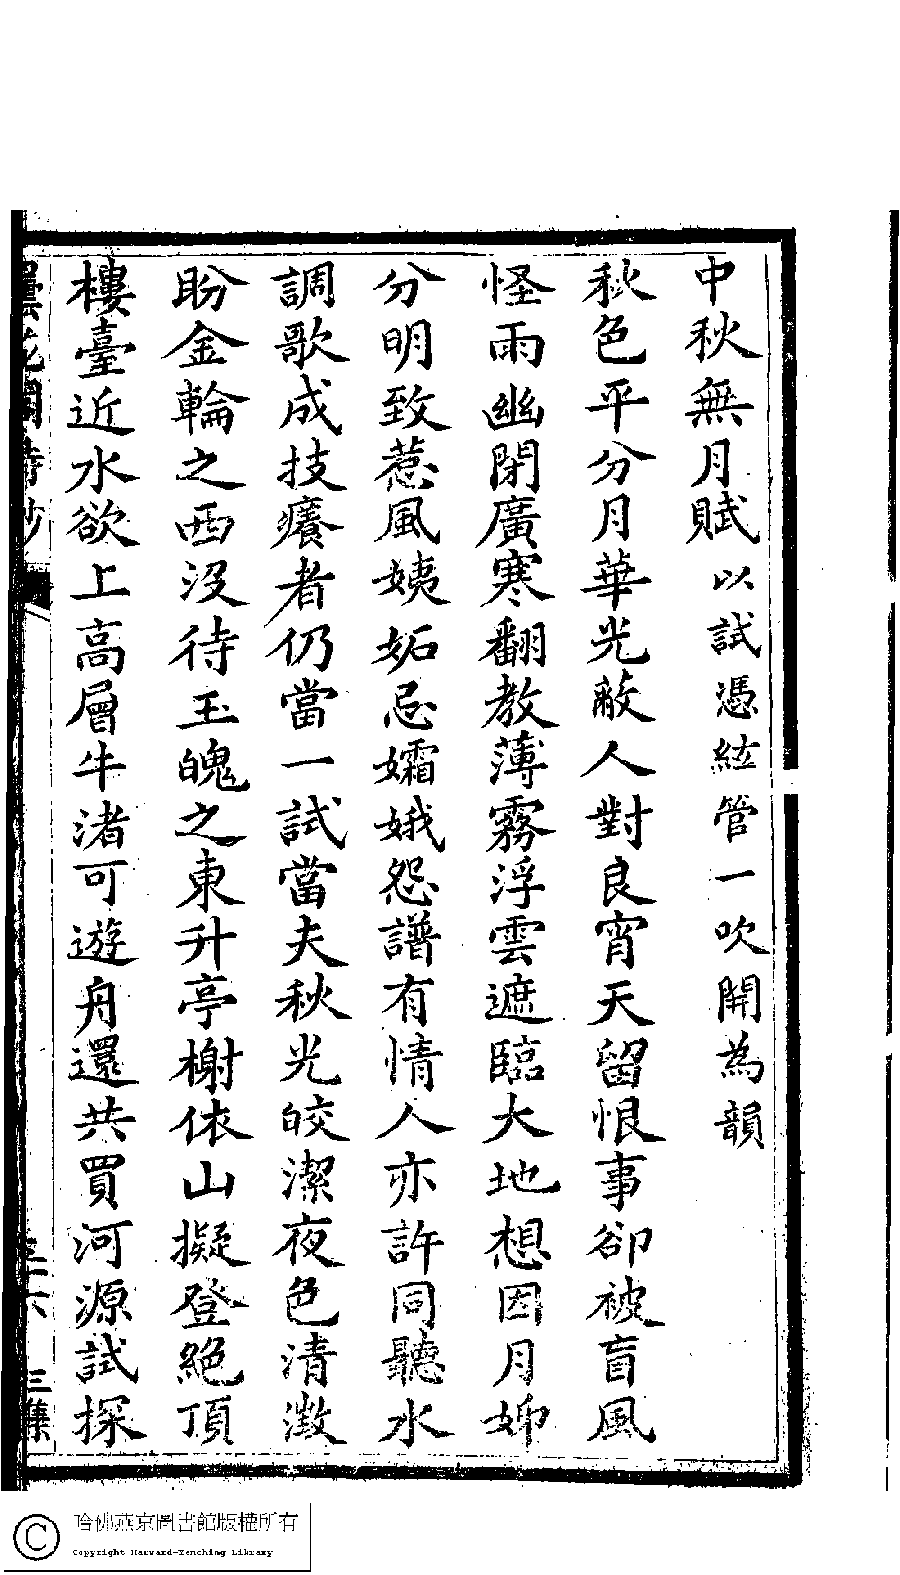 中秋無月賦 以試憑絃管一吹開為韻
秋色平分月華光蔽人對良宵天留恨事卻被盲風
怪雨幽閉廣寒翻教薄霧浮雲遮臨大地想因月姊
分明致惹風姨妬忌孀娥怨譜有情人亦許同聽水
調歌成技癢者仍當一試當夫秋光皎潔夜色清澂
盼金輪之西沒待玉魄之東升亭榭依山擬登絕頂
樓臺近水欲上高層牛渚可遊舟還共買河源試探
曇花閣詩鈔
三集
哈佛燕京圖書館版權所有
Copyright Harvard-Yenching Library